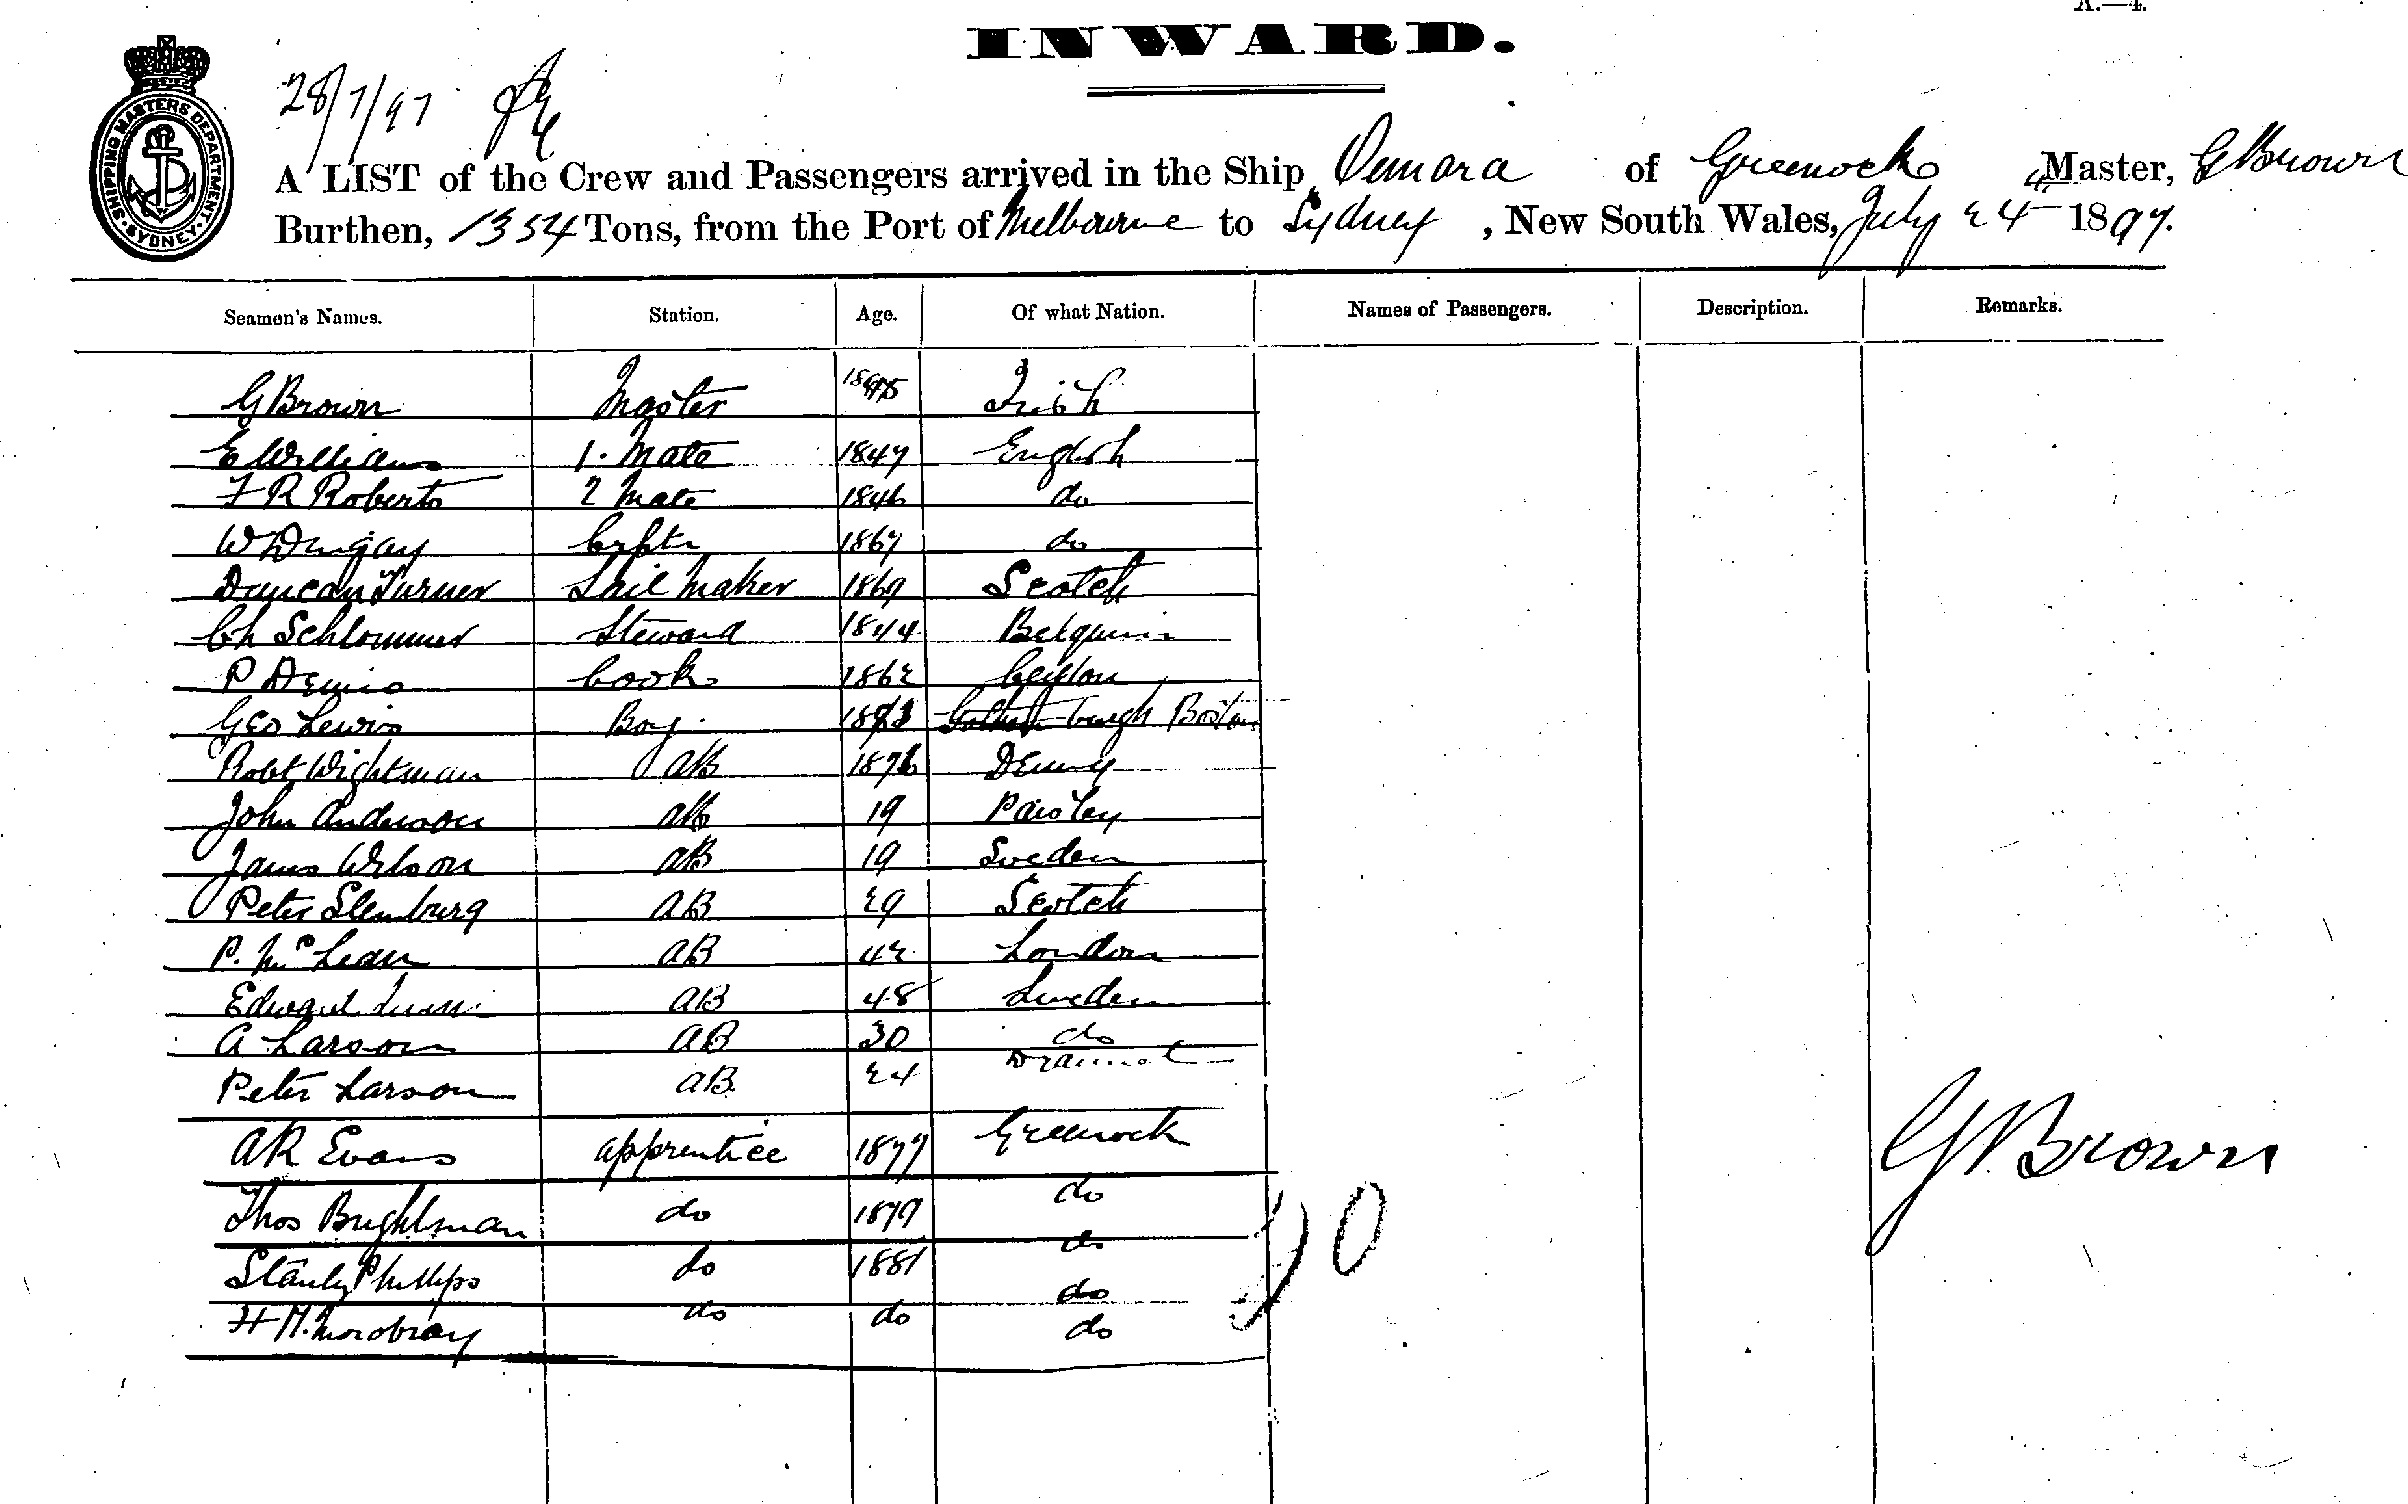 A.—4.
INWARD.
SHIPPING MASTERS DEPARTMENT SYDNEY
28/7/97
A LIST of the Crew and Passengers arrived in the Ship Omara of Greenock Master, G Brown
Burthen, 1354 Tons, from the Port of Melbourne to Sydney, New South Wales, July 24 1897.
Seamen's Names. Station. Age. Of what Nation. Names of Passengers. Description. Remarks.
G Brown Master Irish
E Williams 1. Mate 1847 English
F R Roberts 2 Mate 1846 do
W Dungay Crptr 1867 do
Duncan Turner Sail Maker 1869 Scotch
Ch Schlommer Steward 1844 Belguim
P Dennis Cook 1862 Ceylon
Geo Lewis Boy Boston
Robt Wightman AB 1876 Denny
John Anderson AB 19 Paisley
James Wilson AB 19 Sweden
Peter Stenburg AB 29 Scotch
P. McLean AB 42 London
Edward AB 48 Sweden
A Larson AB 30 do
Peter Larson AB 24
AR Evans apprentice 1877 Greenock
Thos Brightman do 1879 do
Stanley Phillips do 1881 do
do
H M. Mordbray do do do
20
G Brown